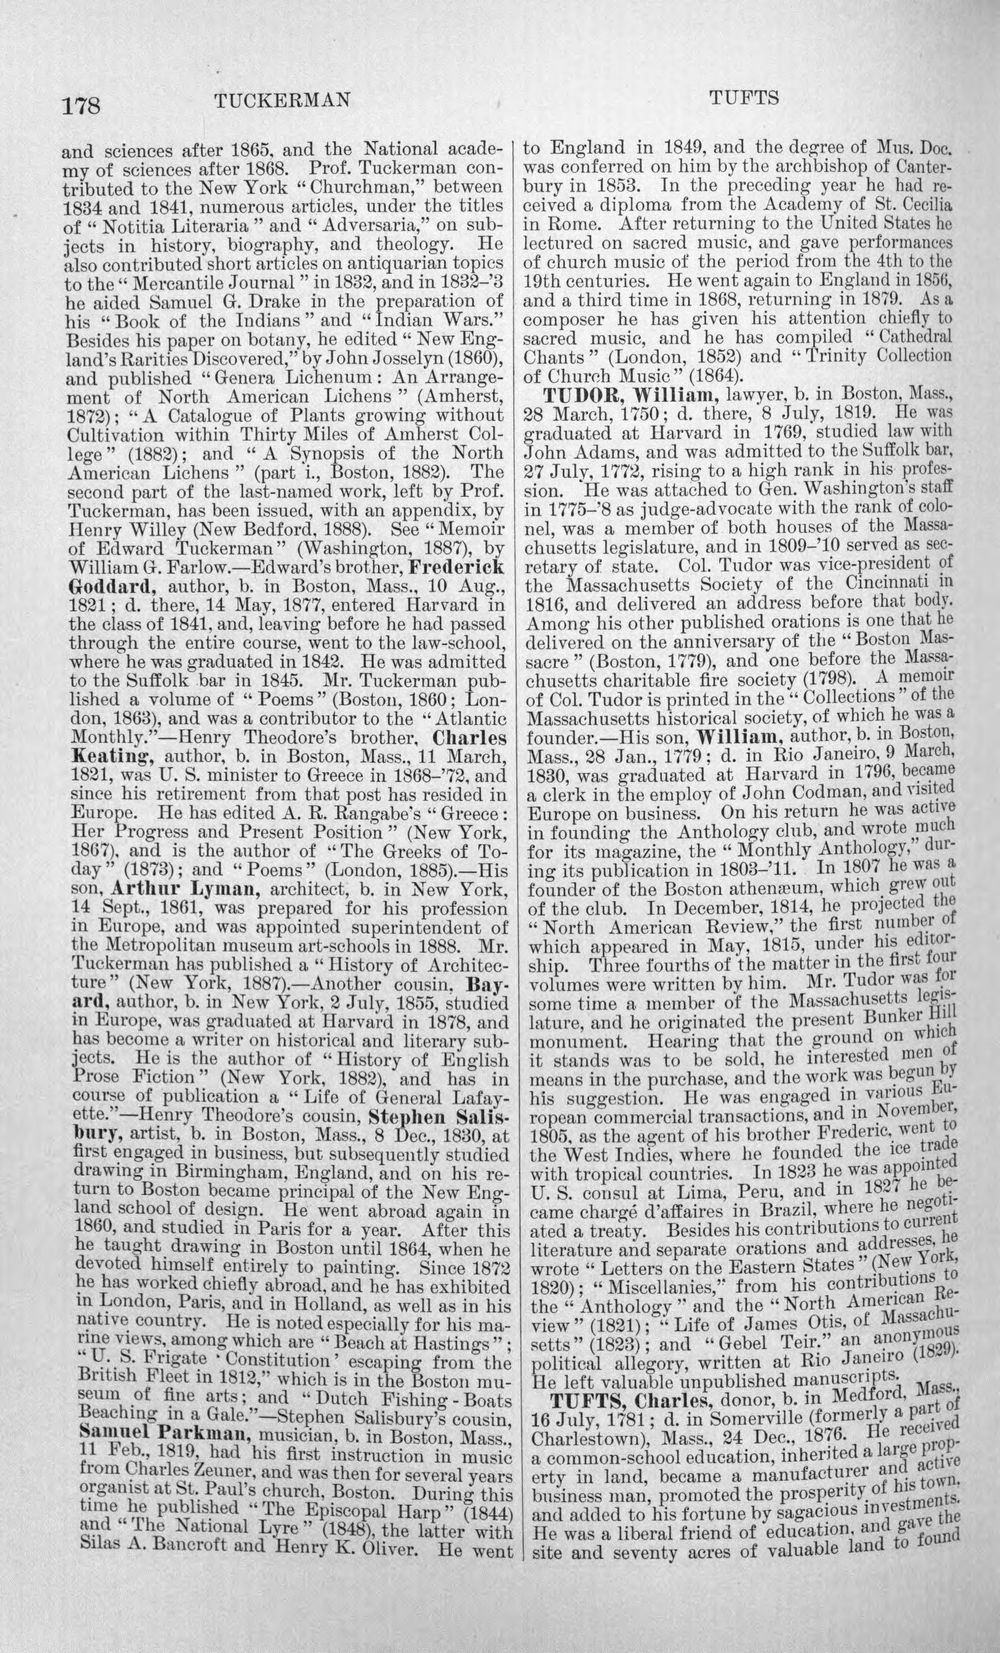 178
TUCKERMAN
TUFTS
and sciences after 1865, and the National acade-
my of sciences after 1868. Prof. Tuckerman con-
tributed to the New York “ Churchman,” between
1834 and 1841, numerous articles, under the titles
of “ Notitia Literaria ” and “ Adversaria,” on sub-
jects in history, biography, and theology. He
also contributed short articles on antiquarian topics
to the “ Mercantile Journal ” in 1832, and in 1832–’3
he aided Samuel G. Drake in the preparation of
his “ Book of the Indians ” and “ Indian Wars.”
Besides his paper on botany, he edited “ New Eng-
land’s Rarities Discovered,” by John Josselyn (1860),
and published “ Genera Lichenum : An Arrange-
ment of North American Lichens ” (Amherst,
1872) ; “ A Catalogue of Plants growing without
Cultivation within Thirty Miles of Amherst Col-
lege ” (1882) ; and “ A Synopsis of the North
American Lichens ” (part i., Boston, 1882). The
second part of the last-named work, left by Prof.
Tuckerman, has been issued, with an appendix, by
Henry Willey (New Bedford, 1888). See “ Memoir
of Edward Tuckerman ” (Washington, 1887), by
William G. Farlow.—Edward’s brother, Frederick
Goddard, author, b. in Boston, Mass., 10 Aug.,
1821 ; d. there, 14 May, 1877, entered Harvard in
the class of 1841, and, leaving before he had passed
through the entire course, went to the law-school,
where he was graduated in 1842. He was admitted
to the Suffolk bar in 1845. Mr. Tuckerman pub-
lished a volume of “ Poems ” (Boston, 1860 ; Lon-
don, 1863), and was a contributor to the “ Atlantic
Monthly.”—Henry Theodore’s brother, Charles
Keating, author, b. in Boston, Mass., 11 March,
1821, was U. S. minister to Greece in 1868–’72, and
since his retirement from that post has resided in
Europe. He has edited A. R. Rangabe’s “ Greece :
Her Progress and Present Position ” (New York,
1867), and is the author of “ The Greeks of To-
day ” (1873) ; and “ Poems ” (London, 1885).—His
son, Arthur Lyman, architect, b. in New York,
14 Sept., 1861, was prepared for his profession
in Europe, and was appointed superintendent of
the Metropolitan museum art-schools in 1888. Mr.
Tuckerman has published a “ History of Architec-
ture ” (New York, 1887).—Another cousin, Bay-
ard, author, b. in New York, 2 July, 1855, studied
in Europe, was graduated at Harvard in 1878, and
has become a writer on historical and literary sub-
jects. He is the author of “ History of English
Prose Fiction ” (New York, 1882), and has in
course of publication a “ Life of General Lafay-
ette.”—Henry Theodore’s cousin, Stephen Salis-
bury, artist, b. in Boston, Mass., 8 Dec., 1830, at
first engaged in business, but subsequently studied
drawing in Birmingham, England, and on his re-
turn to Boston became principal of the New Eng-
land school of design. He went abroad again in
1860, and studied in Paris for a year. After this
he taught drawing in Boston until 1864, when he
devoted himself entirely to painting. Since 1872
he has worked chiefly abroad, and he has exhibited
in London, Paris, and in Holland, as well as in his
native country. He is noted especially for his ma-
rine views, among which are “ Beach at Hastings ” ;
“ U. S. Frigate ‘ Constitution ’ escaping from the
British Fleet in 1812,” which is in the Boston mu-
seum of fine arts ; and “ Dutch Fishing-Boats
Beaching in a Gale.”—Stephen Salisbury’s cousin,
Samuel Parkman, musician, b. in Boston, Mass.,
11 Feb., 1819, had his first instruction in music
from Charles Zeuner, and was then for several years
organist at St. Paul’s church, Boston. During this
time he published “ The Episcopal Harp ” (1844)
and “ The National Lyre ” (1848), the latter with
Silas A. Bancroft and Henry K. Oliver. He went
to England in 1849, and the degree of Mus. Doc.
was conferred on him by the archbishop of Canter-
bury in 1853. In the preceding year he had re-
ceived a diploma from the Academy of St. Cecilia
in Rome. After returning to the United States he
lectured on sacred music, and gave performances
of church music of the period from the 4th to the
19th centuries. He went again to England in 1856,
and a third time in 1868, returning in 1879. As a
composer he has given his attention chiefly to
sacred music, and he has compiled “ Cathedral
Chants ” (London, 1852) and “ Trinity Collection
of Church Music ” (1864).
TUDOR, William, lawyer, b. in Boston, Mass.,
28 March, 1750 ; d. there, 8 July, 1819. He was
graduated at Harvard in 1769, studied law with
John Adams, and was admitted to the Suffolk bar,
27 July, 1772, rising to a high rank in his profes-
sion. He was attached to Gen. Washington’s staff
in 1775–’8 as judge-advocate with the rank of colo-
nel, was a member of both houses of the Massa-
chusetts legislature, and in 1809–’10 served as sec-
retary of state. Col. Tudor was vice-president of
the Massachusetts Society of the Cincinnati in
1816, and delivered an address before that body.
Among his other published orations is one that he
delivered on the anniversary of the “ Boston Mas-
sacre ” (Boston, 1779), and one before the Massa-
chusetts charitable fire society (1798). A memoir
of Col. Tudor is printed in the “ Collections ” of the
Massachusetts historical society, of which he was a
founder.—His son, William, author, b. in Boston,
Mass., 28 Jan., 1779 ; d. in Rio Janeiro, 9 March,
1830, was graduated at Harvard in 1796, became
a clerk in the employ of John Codman, and visited
Europe on business. On his return he was active
in founding the Anthology club, and wrote much
for its magazine, the “ Monthly Anthology,” dur-
ing its publication in 1803–’11. In 1807 he was a
founder of the Boston athenæum, which grew out
of the club. In December, 1814, he projected the
“ North American Review,” the first number of
which appeared in May, 1815, under his editor-
ship. Three fourths of the matter in the first four
volumes were written by him. Mr. Tudor was for
some time a member of the Massachusetts legis-
lature, and he originated the present Bunker Hill
monument. Hearing that the ground on which
it stands was to be sold, he interested men of
means in the purchase, and the work was begun by
his suggestion. He was engaged in various Eu-
ropean commercial transactions, and in November,
1805, as the agent of his brother Frederic, went to
the West Indies, where he founded the ice trade
with tropical countries. In 1823 he was appointed
U. S. consul at Lima, Peru, and in 1827 he be-
came chargé d’affaires in Brazil, where he negoti-
ated a treaty. Besides his contributions to current
literature and separate orations and addresses, he
wrote “ Letters on the Eastern States ” (New York,
1820) ; “ Miscellanies,” from his contributions to
the “ Anthology ” and the “ North American Re-
view ” (1821) ; “ Life of James Otis, of Massachu-
setts ” (1823) ; and “ Gebel Teir.” an anonymous
political allegory, written at Rio Janeiro (1829).
He left valuable unpublished manuscripts.
TUFTS, Charles, donor, b. in Medford, Mass.,
16 July, 1781 ; d. in Somerville (formerly a part of
Charlestown), Mass., 24 Dec., 1876. He received
a common-school education, inherited a large prop-
erty in land, became a manufacturer and active
business man, promoted the prosperity of his town,
and added to his fortune by sagacious investments.
He was a liberal friend of education, and gave the
site and seventy acres of valuable land to found